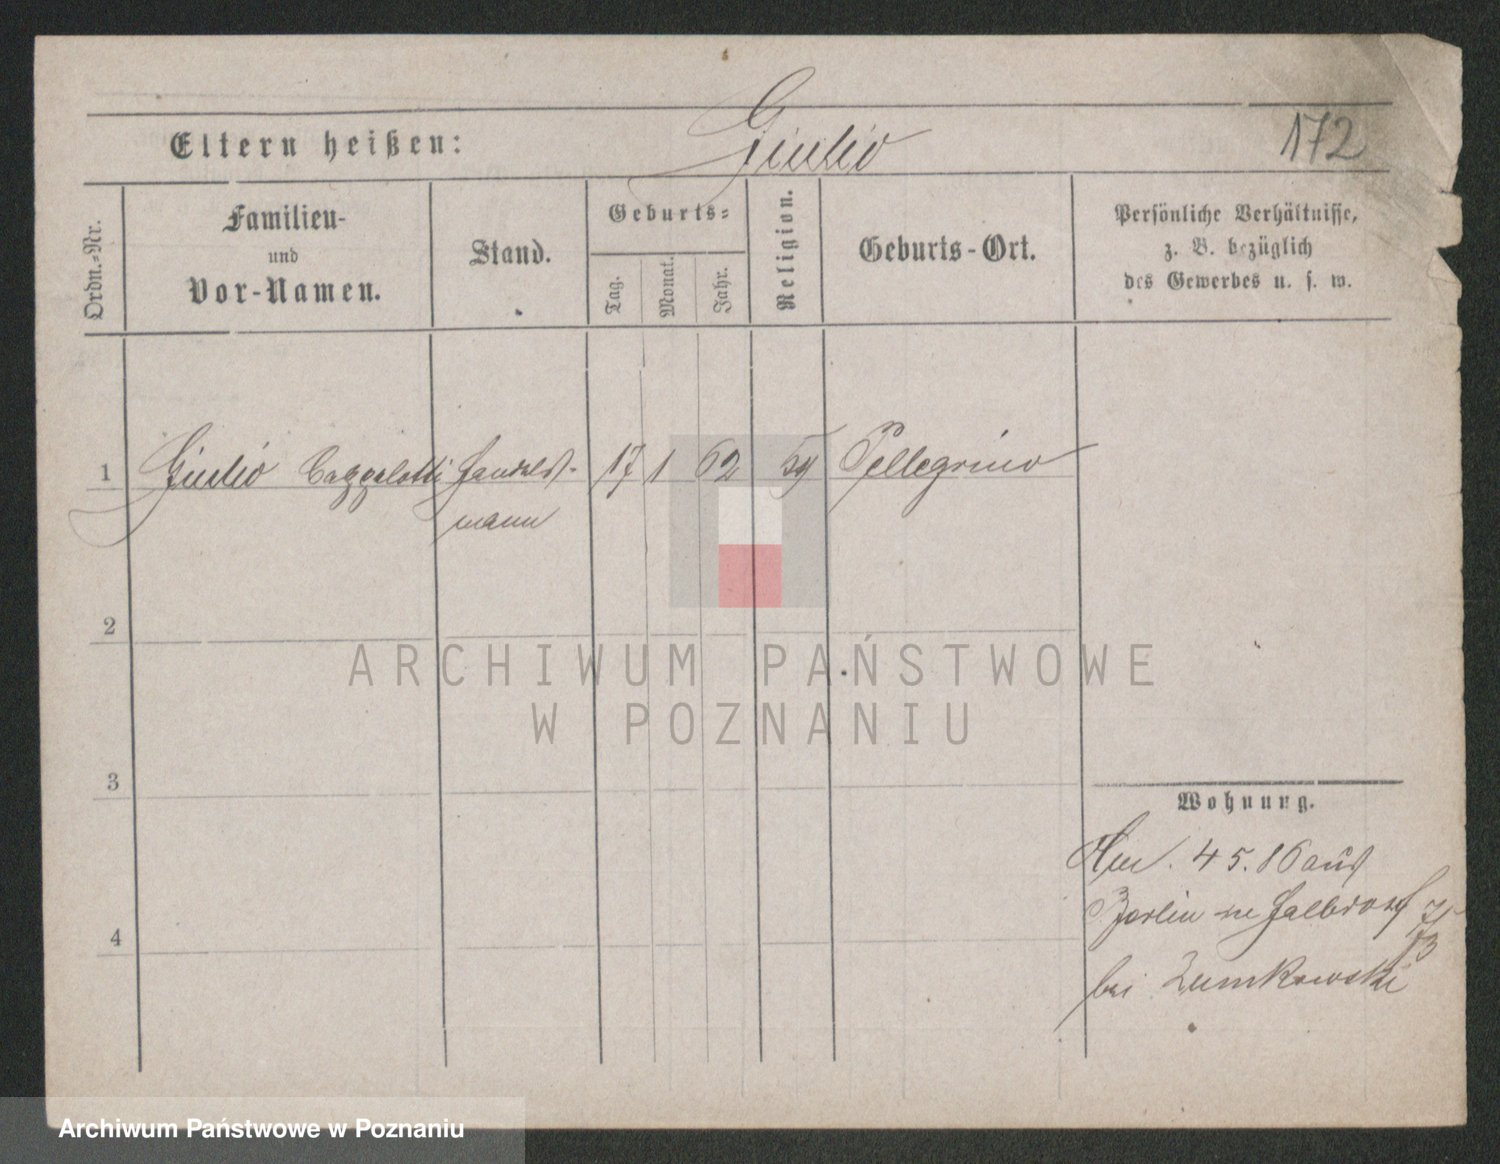 Giulio
172
Eltern heißen:
Ordn.-Nr.
Familien-
und
Vor-Namen.
Stand.
Geburts-
Tag.
Monat.
Jahr.
Religion.
Geburts-Ort.
Persönliche Verhältnisse,
z. B. bezüglich
des Gewerbes u. s. w.
1 Giulio Caggelotti Handels- 17 1 62 Pellegrino
mann
2
3
4
Wohnung.
4 5. 86 aus
Berlin
bei Zumkowski
ARCHIWUM PAŃSTWOWE
W POZNANIU
Archiwum Państwowe w Poznaniu